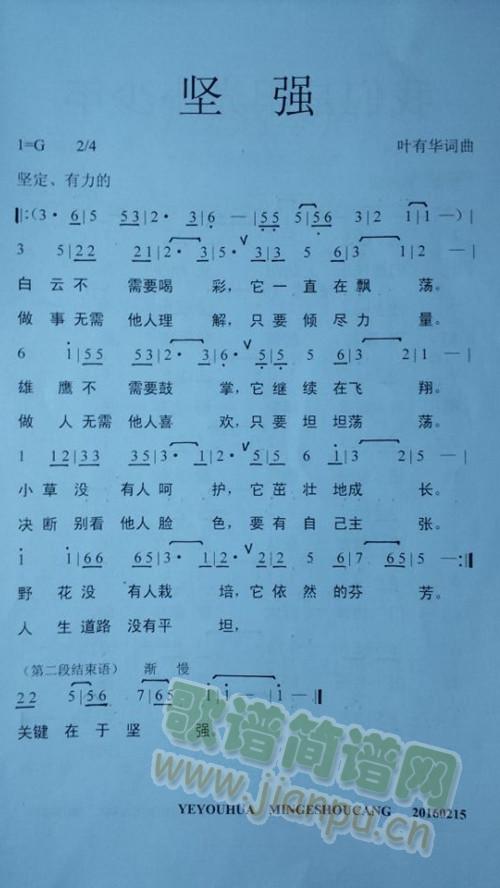 坚 强
1=G 2/4 叶有华词曲
坚定、有力的
‖:(3· 6|5 53|2· 3|6 —|55 5|56 3|2 1|1 —)|
3 5|22 21|2· 3|5· 3|33 2|5 6|3 2|2 —|
白 云 不 需要喝 彩，它 一 直 在 飘 荡。
做 事 无需 他人理 解，只 要 倾 尽 力 量。
6 i|55 53|2· 3|6· 6|55 5|2 5|6 2|1 —|
雄 鹰 不 需要鼓 掌，它 继 续 在飞 翔。
做 人 无需 他人喜 欢，只 要 坦 坦荡 荡。
1 12|33 35|3 2|1· 2|55 6|i 3|2 5|5 —|
小 草 没 有人 呵 护，它 茁 壮 地成 长。
决 断 别看 他人 脸 色，要 有 自 己主 张。
i i|66 65|3· 1|2· 2|22 2|5 6|7 65|5 —:‖
野 花 没 有人 栽 培，它 依 然 的芬 芳。
人 生 道路 没有平 坦，
（第二段结束语） 渐 慢
22 5|56 7|65 i|i —|i —‖
关键 在 于 坚 强。
歌谱简谱网
www.jianpu.cn
YEYOUHUA MINGESHOUCANG 20160215